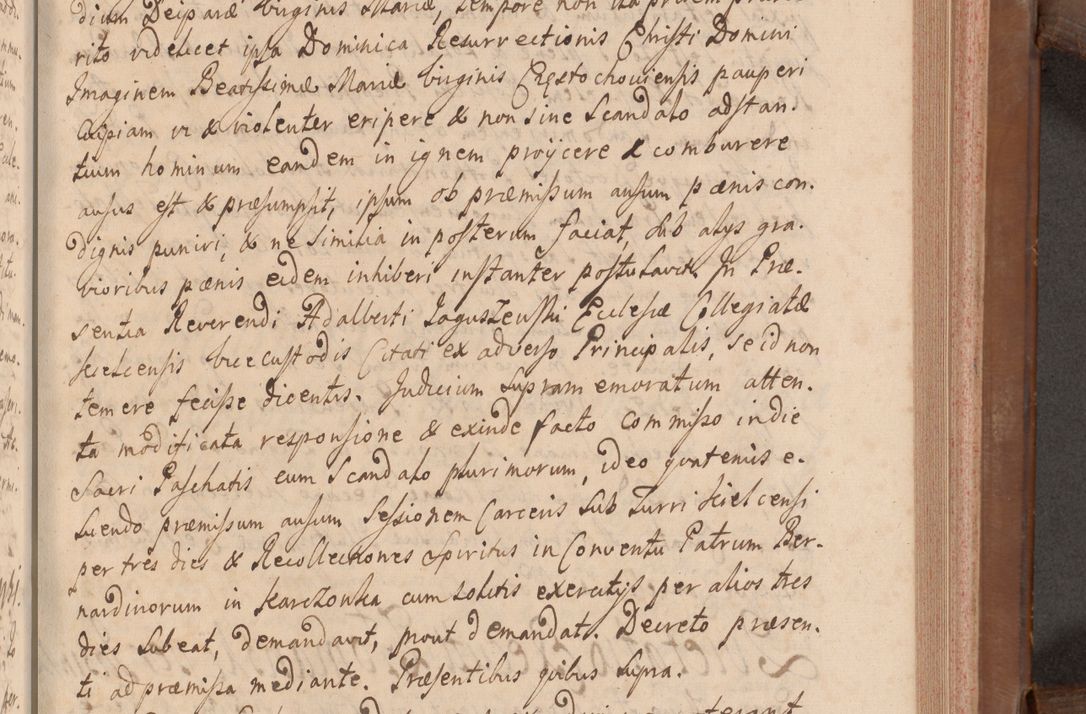 dium Deiparæ Virginis Mariæ, tempore non ita
rito videlicet ipsa Dominica Resurrectionis Christi Domini
Imaginem Beatissimæ Mariæ Virginis Częstochoviensis pauperi
cuipiam vi & violenter eripere & non sine scandalo adstan-
tium hominum eandem in ignem projicere & comburere
ausus est & præsumpsit, ipsum ob præmissum ausum pænis con-
dignis puniri, & ne similia in posterum faciat, sub alys gra-
vioribus pænis eidem inhiberi instanter postulavit. In Præ-
sentia Reverendi Adalberti Ecclesiæ Collegiatæ
Kielcensis vice custodis Citati ex adverso Principalis, se id non
temere fecisse dicentis. Judicium supramemoratum atten-
ta modificata responsione & exinde facto commisso in die
Sacri Paschatis cum scandalo plurimorum, ideo quatenus e-
luendo præmissum ausum sessionem Carceris sub Turri Kielcensi
per tres dies & Recollectiones Spiritus in Conventu Patrum Ber-
nardinorum in Karczowka cum solitis exercitys per alios tres
dies subeat, demandavit, prout demandat. Decreto præsen-
ti ad præmissa mediante. Præsentibus quibus supra.